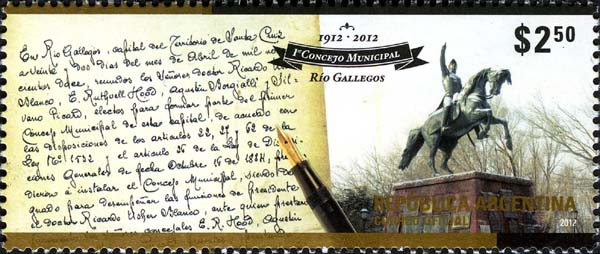 En Río Gallegos, capital del Territorio de Santa Cruz
a veinte dos días del mes de Abril de mil nove-
cientos doce, reunidos los Señores doctor Ricardo
Blanco, E. Ruthwell Hood, Agustín Borgialli y Sil-
vano Picard, electos para formar parte del primer
Concejo Municipal de esta capital, de acuerdo con
las disposiciones de los artículos 22, 27 y 62 de la
Ley Nº 1532 y el artículo 26 de la de Disposi-
ciones Generales de fecha Octubre 16 de 1884,
dieron a instalar el Concejo Municipal, siendo
para desempeñar las funciones de Presidente
el doctor Ricardo Blanco, ante quien prestan
concejales E. R. Hood, Agustín
1912 · 2012
1º CONCEJO MUNICIPAL
RÍO GALLEGOS
$2.50
REPÚBLICA ARGENTINA
CORREO OFICIAL
2012